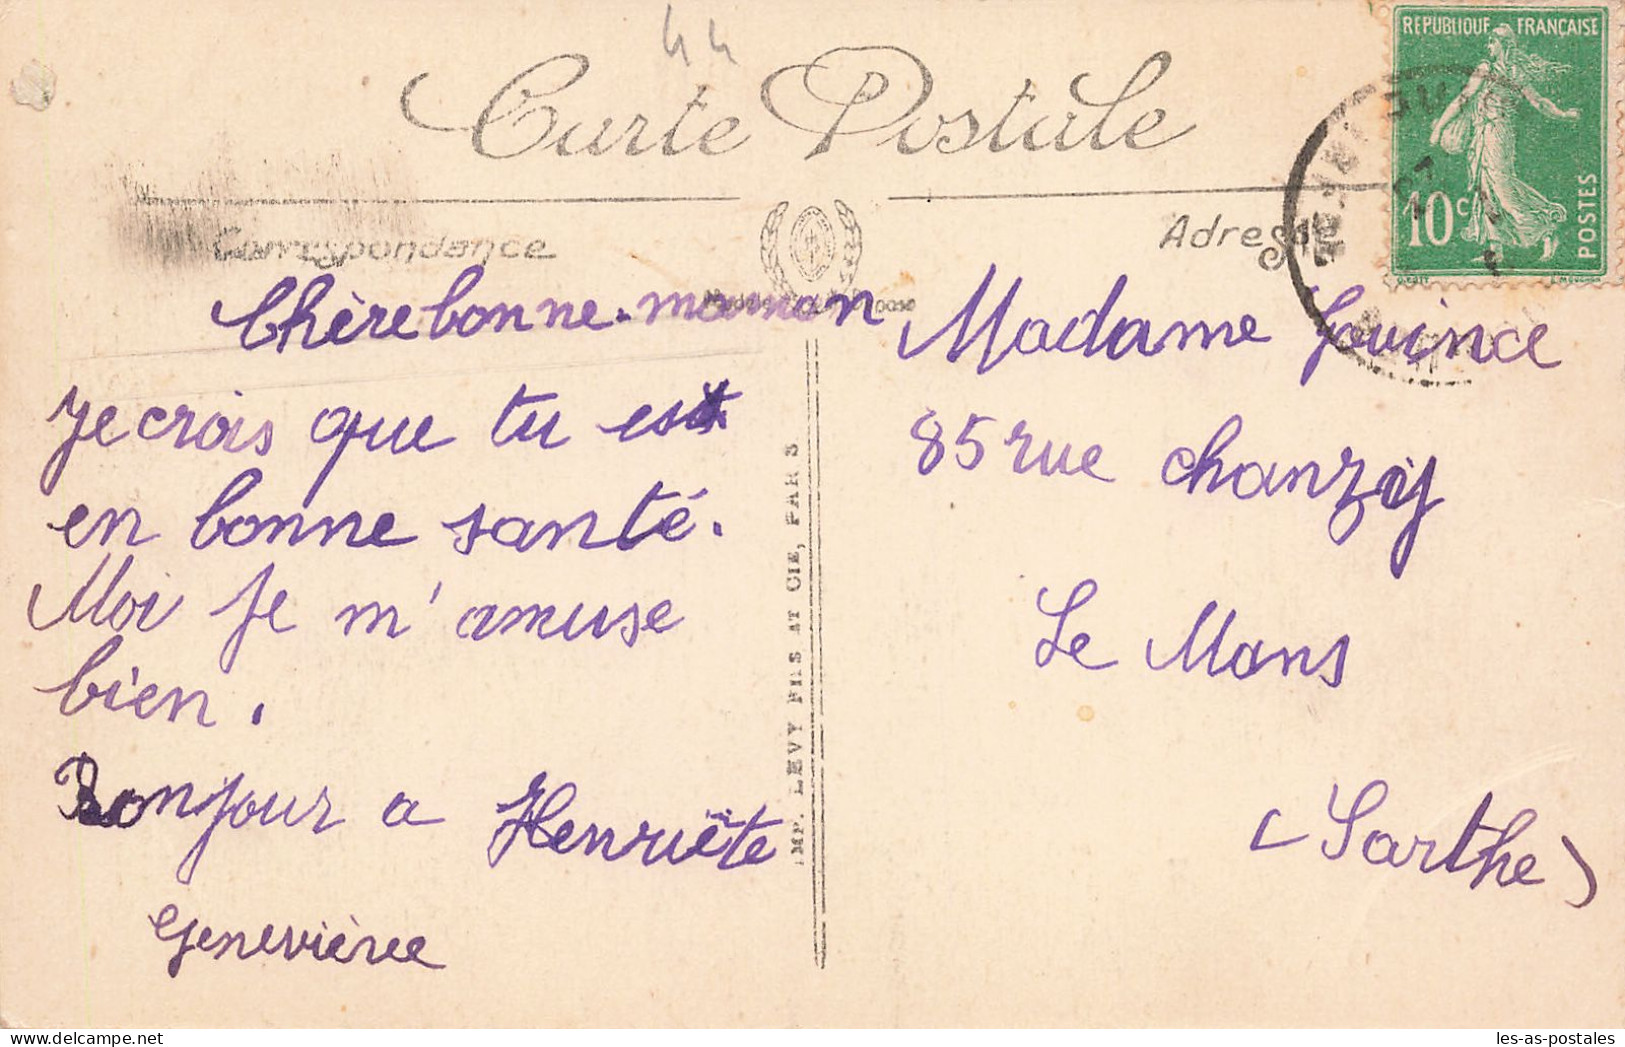 44
Carte Postale
RÉPUBLIQUE FRANÇAISE
10c
POSTES
Correspondance
Adresse
Chère bonne-maman
Je crois que tu es
en bonne santé.
Moi je m'amuse
bien.
Bonjour a Henriëte
Geneviève
IMP. LEVY FILS AT CIE, PARIS
Madame
85 rue Chanzy
Le Mans
(Sarthe)
les-as-postales